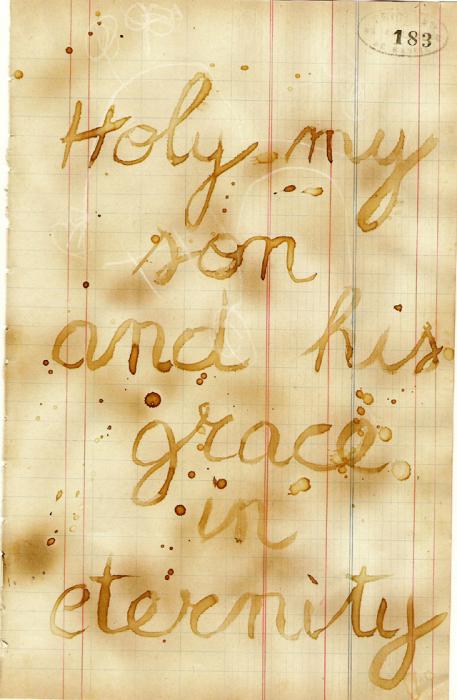 183
Holy my
son
and his
grace
in
eternity